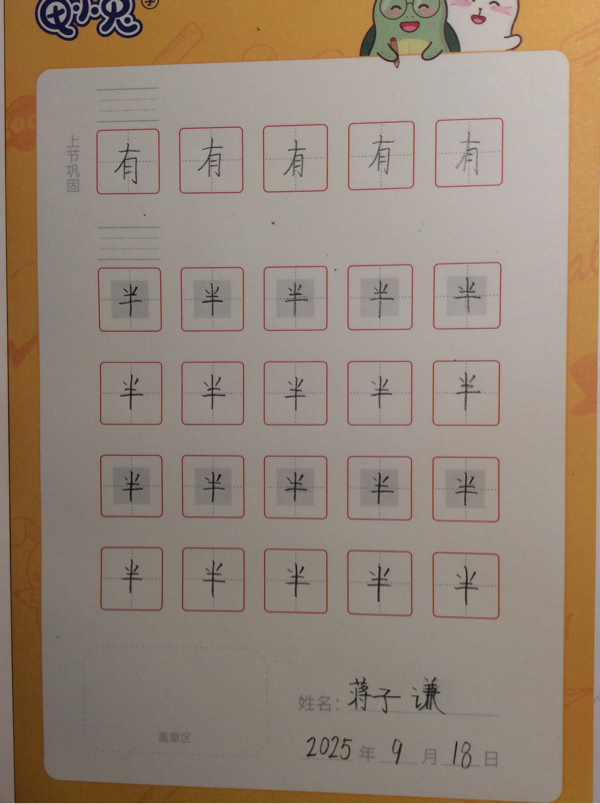 上节巩固
有 有 有 有 有
半 半 半 半 半
半 半 半 半 半
半 半 半 半 半
半 半 半 半 半
姓名: 蒋子谦
盖章区
2025 年 9 月 18 日